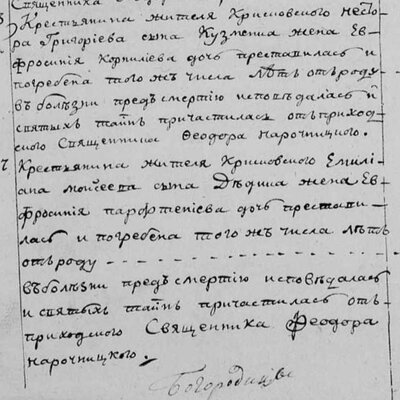 Священника
Крестьянина жителя Хрисковского Несто-
ра Григоріева сына Кузменна жена Ев-
фросинія Корнилієва дочь преставилась и
погребена того жъ числа лѣтъ отъ роду
въ болѣзни предъ смертію исповѣдалась и
святыхъ таинъ причастилась отъ приход-
ского Священника Феодора Нарочницкого.
7 Крестьянина жителя Хрисковского Емилі-
ана Моисеева сына Дѣдина жена Ев-
фросинія Парфтеніева дочь престави-
лась и погребена того жъ числа лѣтъ
отъ роду
въ болѣзни предъ смертію исповѣдалась
и святыхъ таинъ причастилась отъ
приходского Священника Феодора
Нарочницкого.